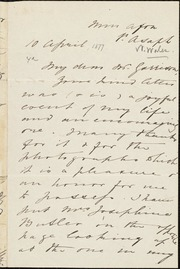 10 April 1877
My dear Mr. Garrison
Your kind letter
was to is a joyful
event of my life
and an encouraging
one. Many thanks
for it & for the
photographs which
it is a pleasure &
an honor for me
to possess. I have
put Mrs Josephine
Butler on the
page looking up
at the one in my